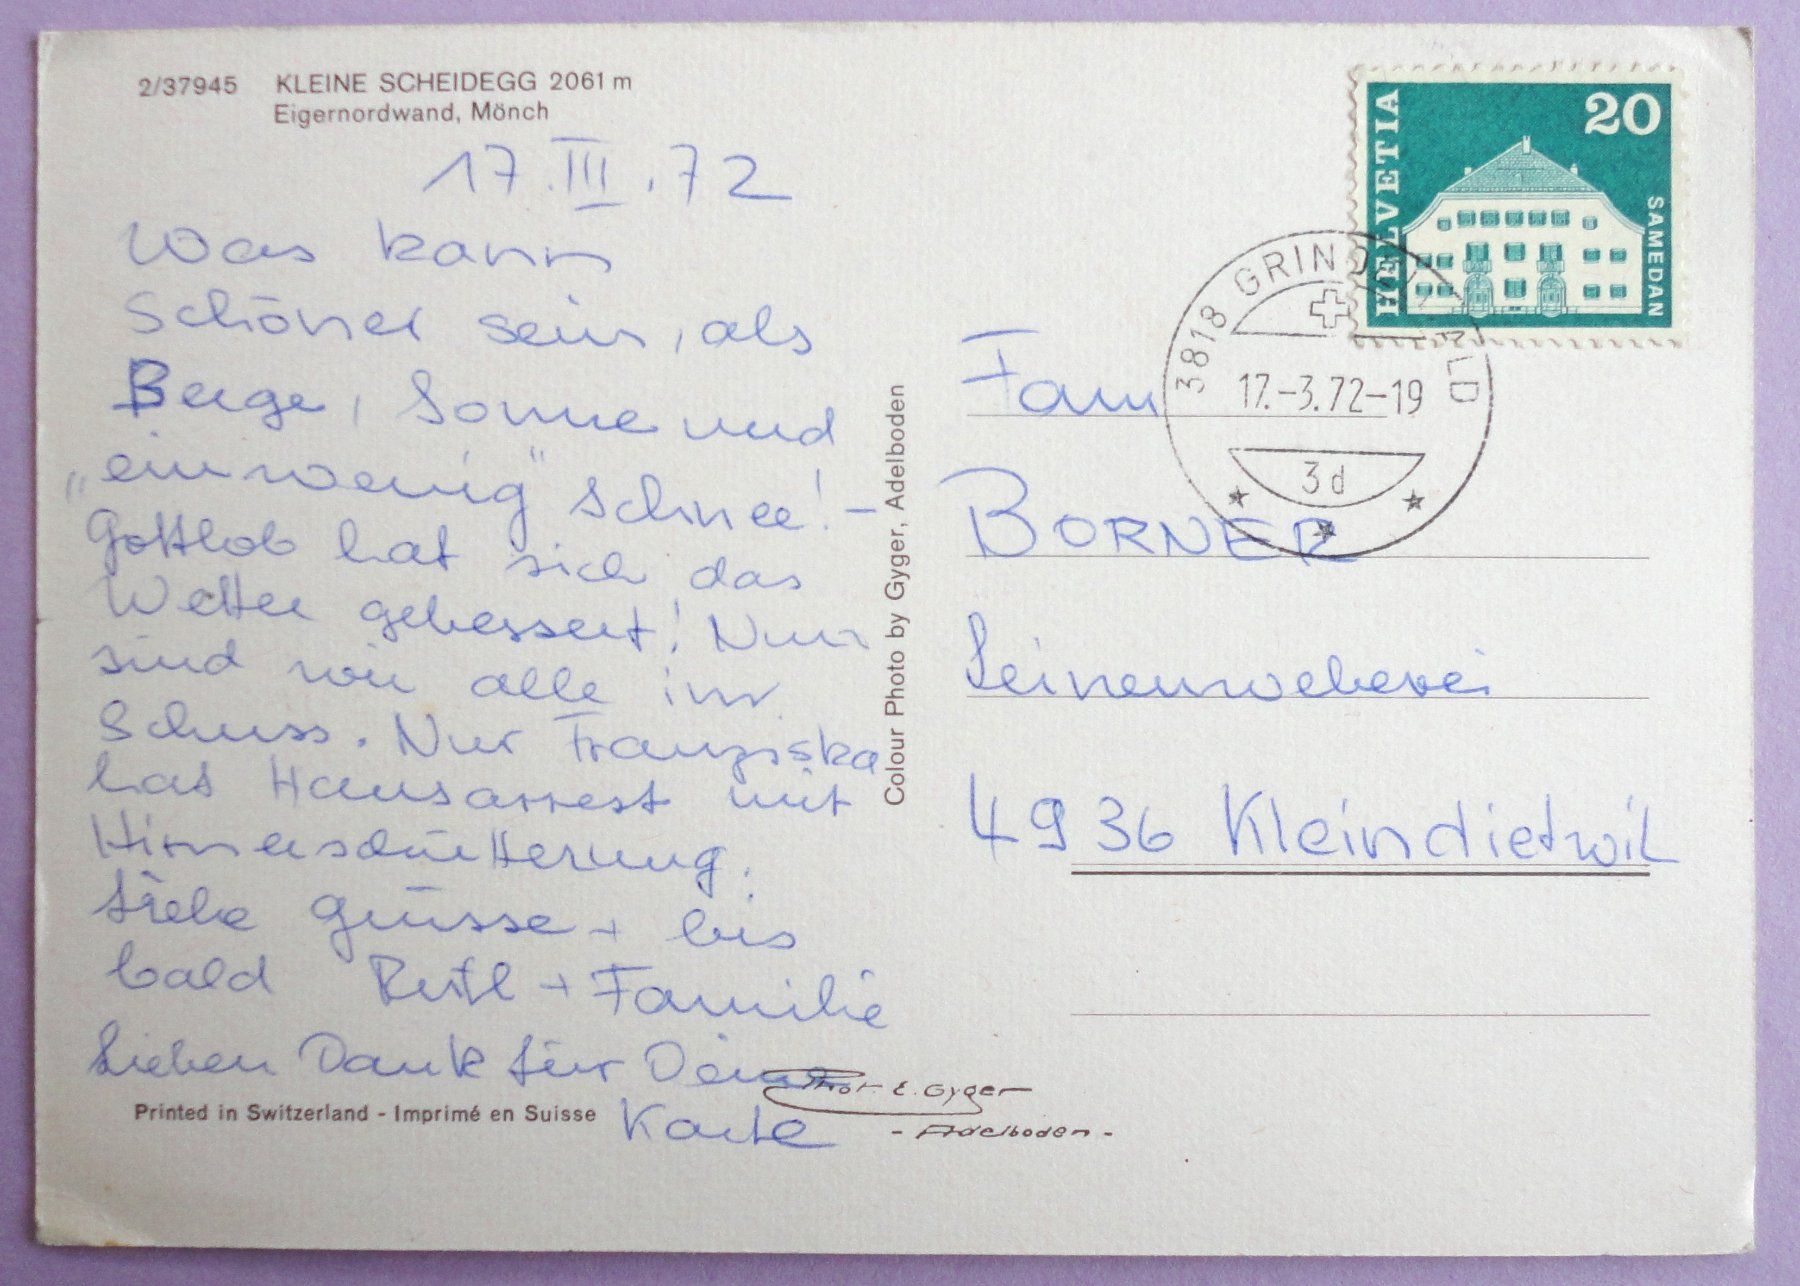 2/37945 KLEINE SCHEIDEGG 2061 m
Eigernordwand, Mönch
17.III.72
Was kann
Schöner sein, als
Berge, Sonne und
„ein wenig" Schnee! –
Gottlob hat sich das
Wetter gebessert! Nun
sind wir alle im
Schuss. Nur Franziska
hat Hausarrest mit
Hirnerschütterung.
Liebe Grüsse + bis
bald Ruth + Familie
Lieben Dank für Deine
Karte
Printed in Switzerland - Imprimé en Suisse
Colour Photo by Gyger, Adelboden
Phot. E. Gyger
- Adelboden -
HELVETIA
20
SAMEDAN
3818 GRINDELWALD
17.-3.72-19
3d
Fam
BORNER
Leinenweberei
4936 Kleindietwil